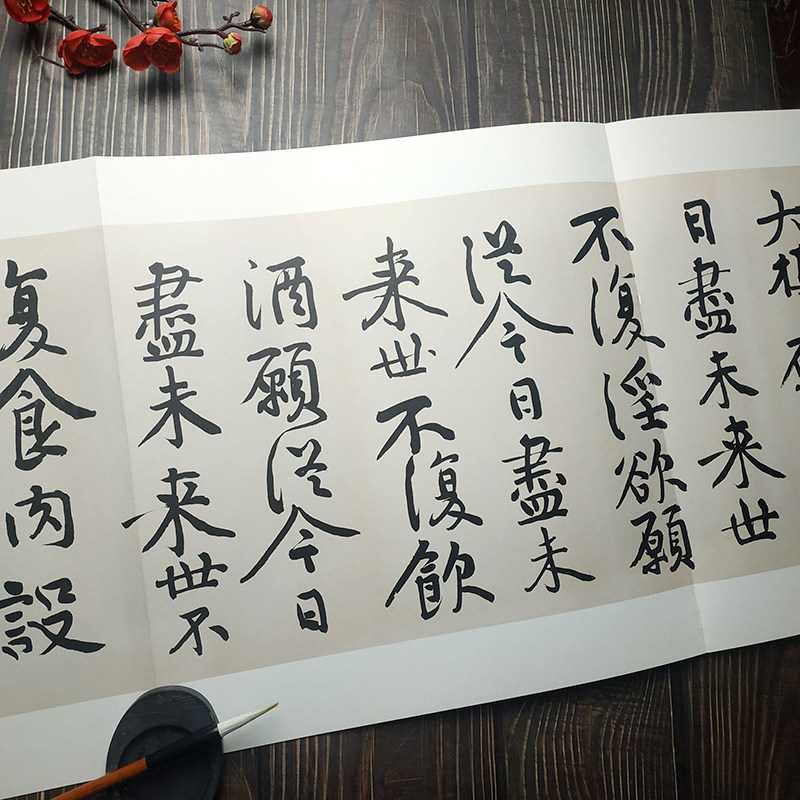 大
日盡未来世
不復淫欲願
従今日盡未
来世不復飲
酒願従今日
盡未来世不
復食肉設